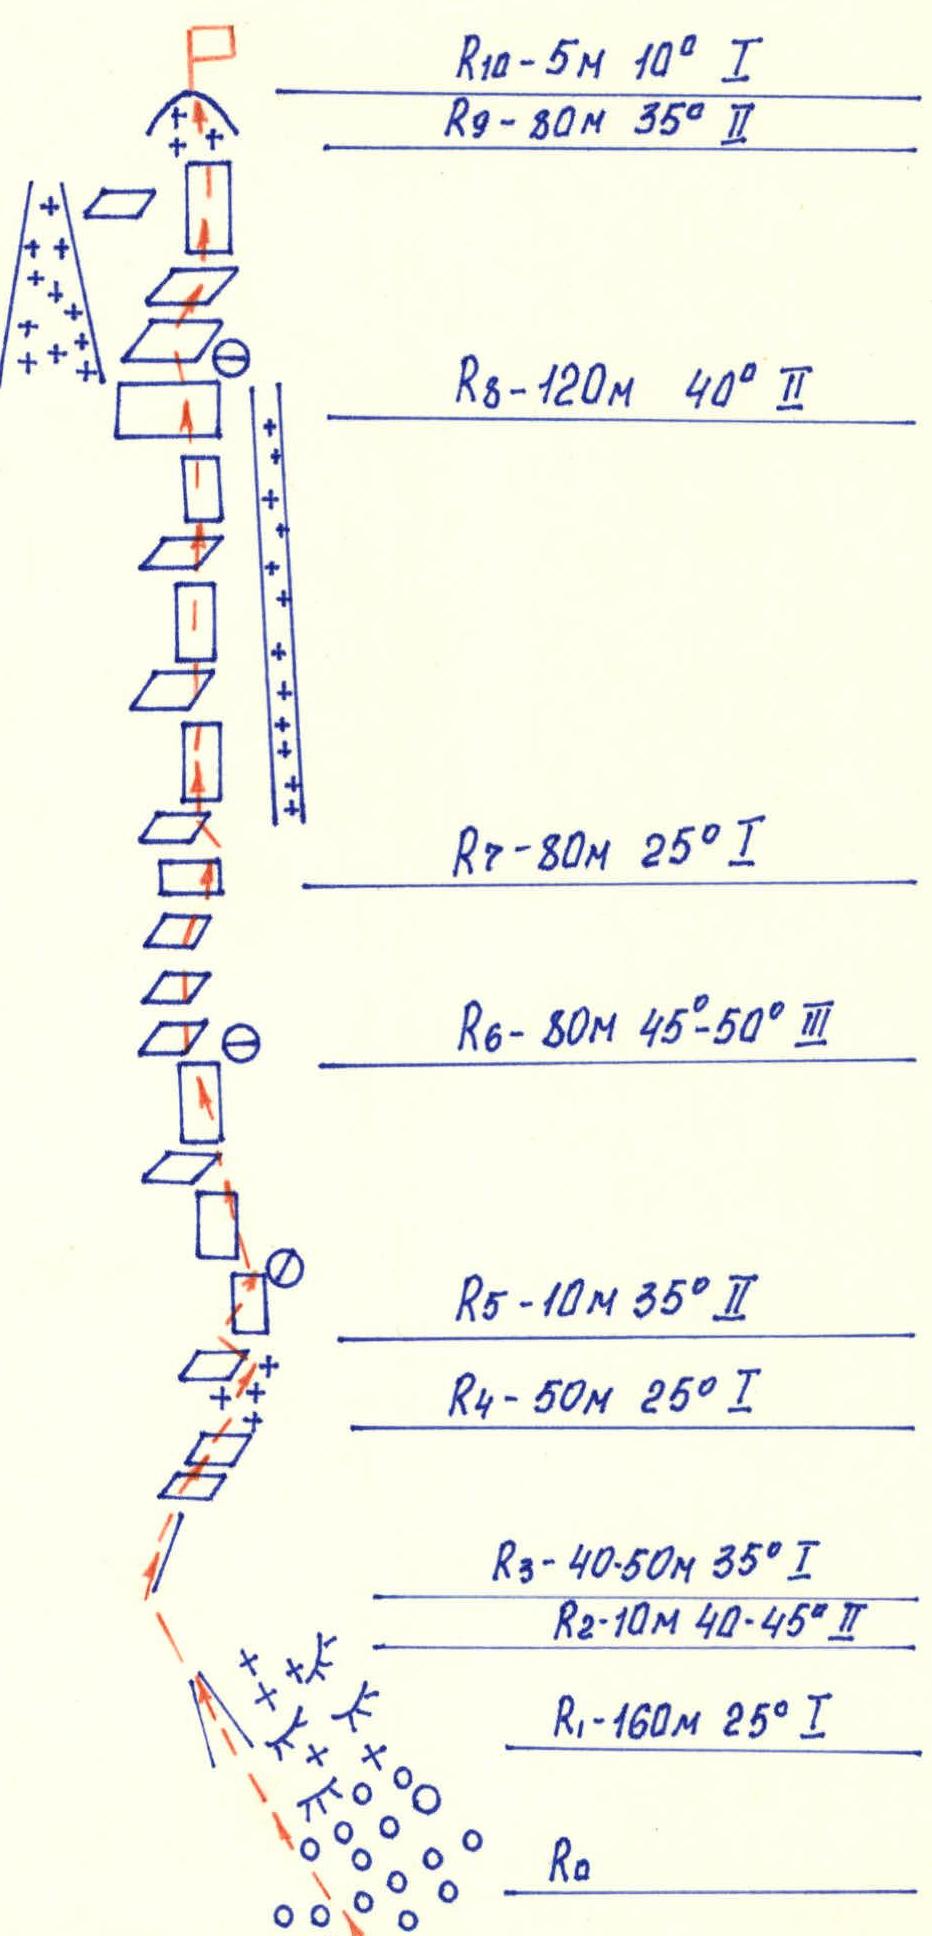 R10 - 5м 10° I
R9 - 80м 35° II
R8 - 120м 40° II
R7 - 80м 25° I
R6 - 80м 45°-50° III
R5 - 10м 35° II
R4 - 50м 25° I
R3 - 40-50м 35° I
R2 - 10м 40-45° II
R1 - 160м 25° I
R0